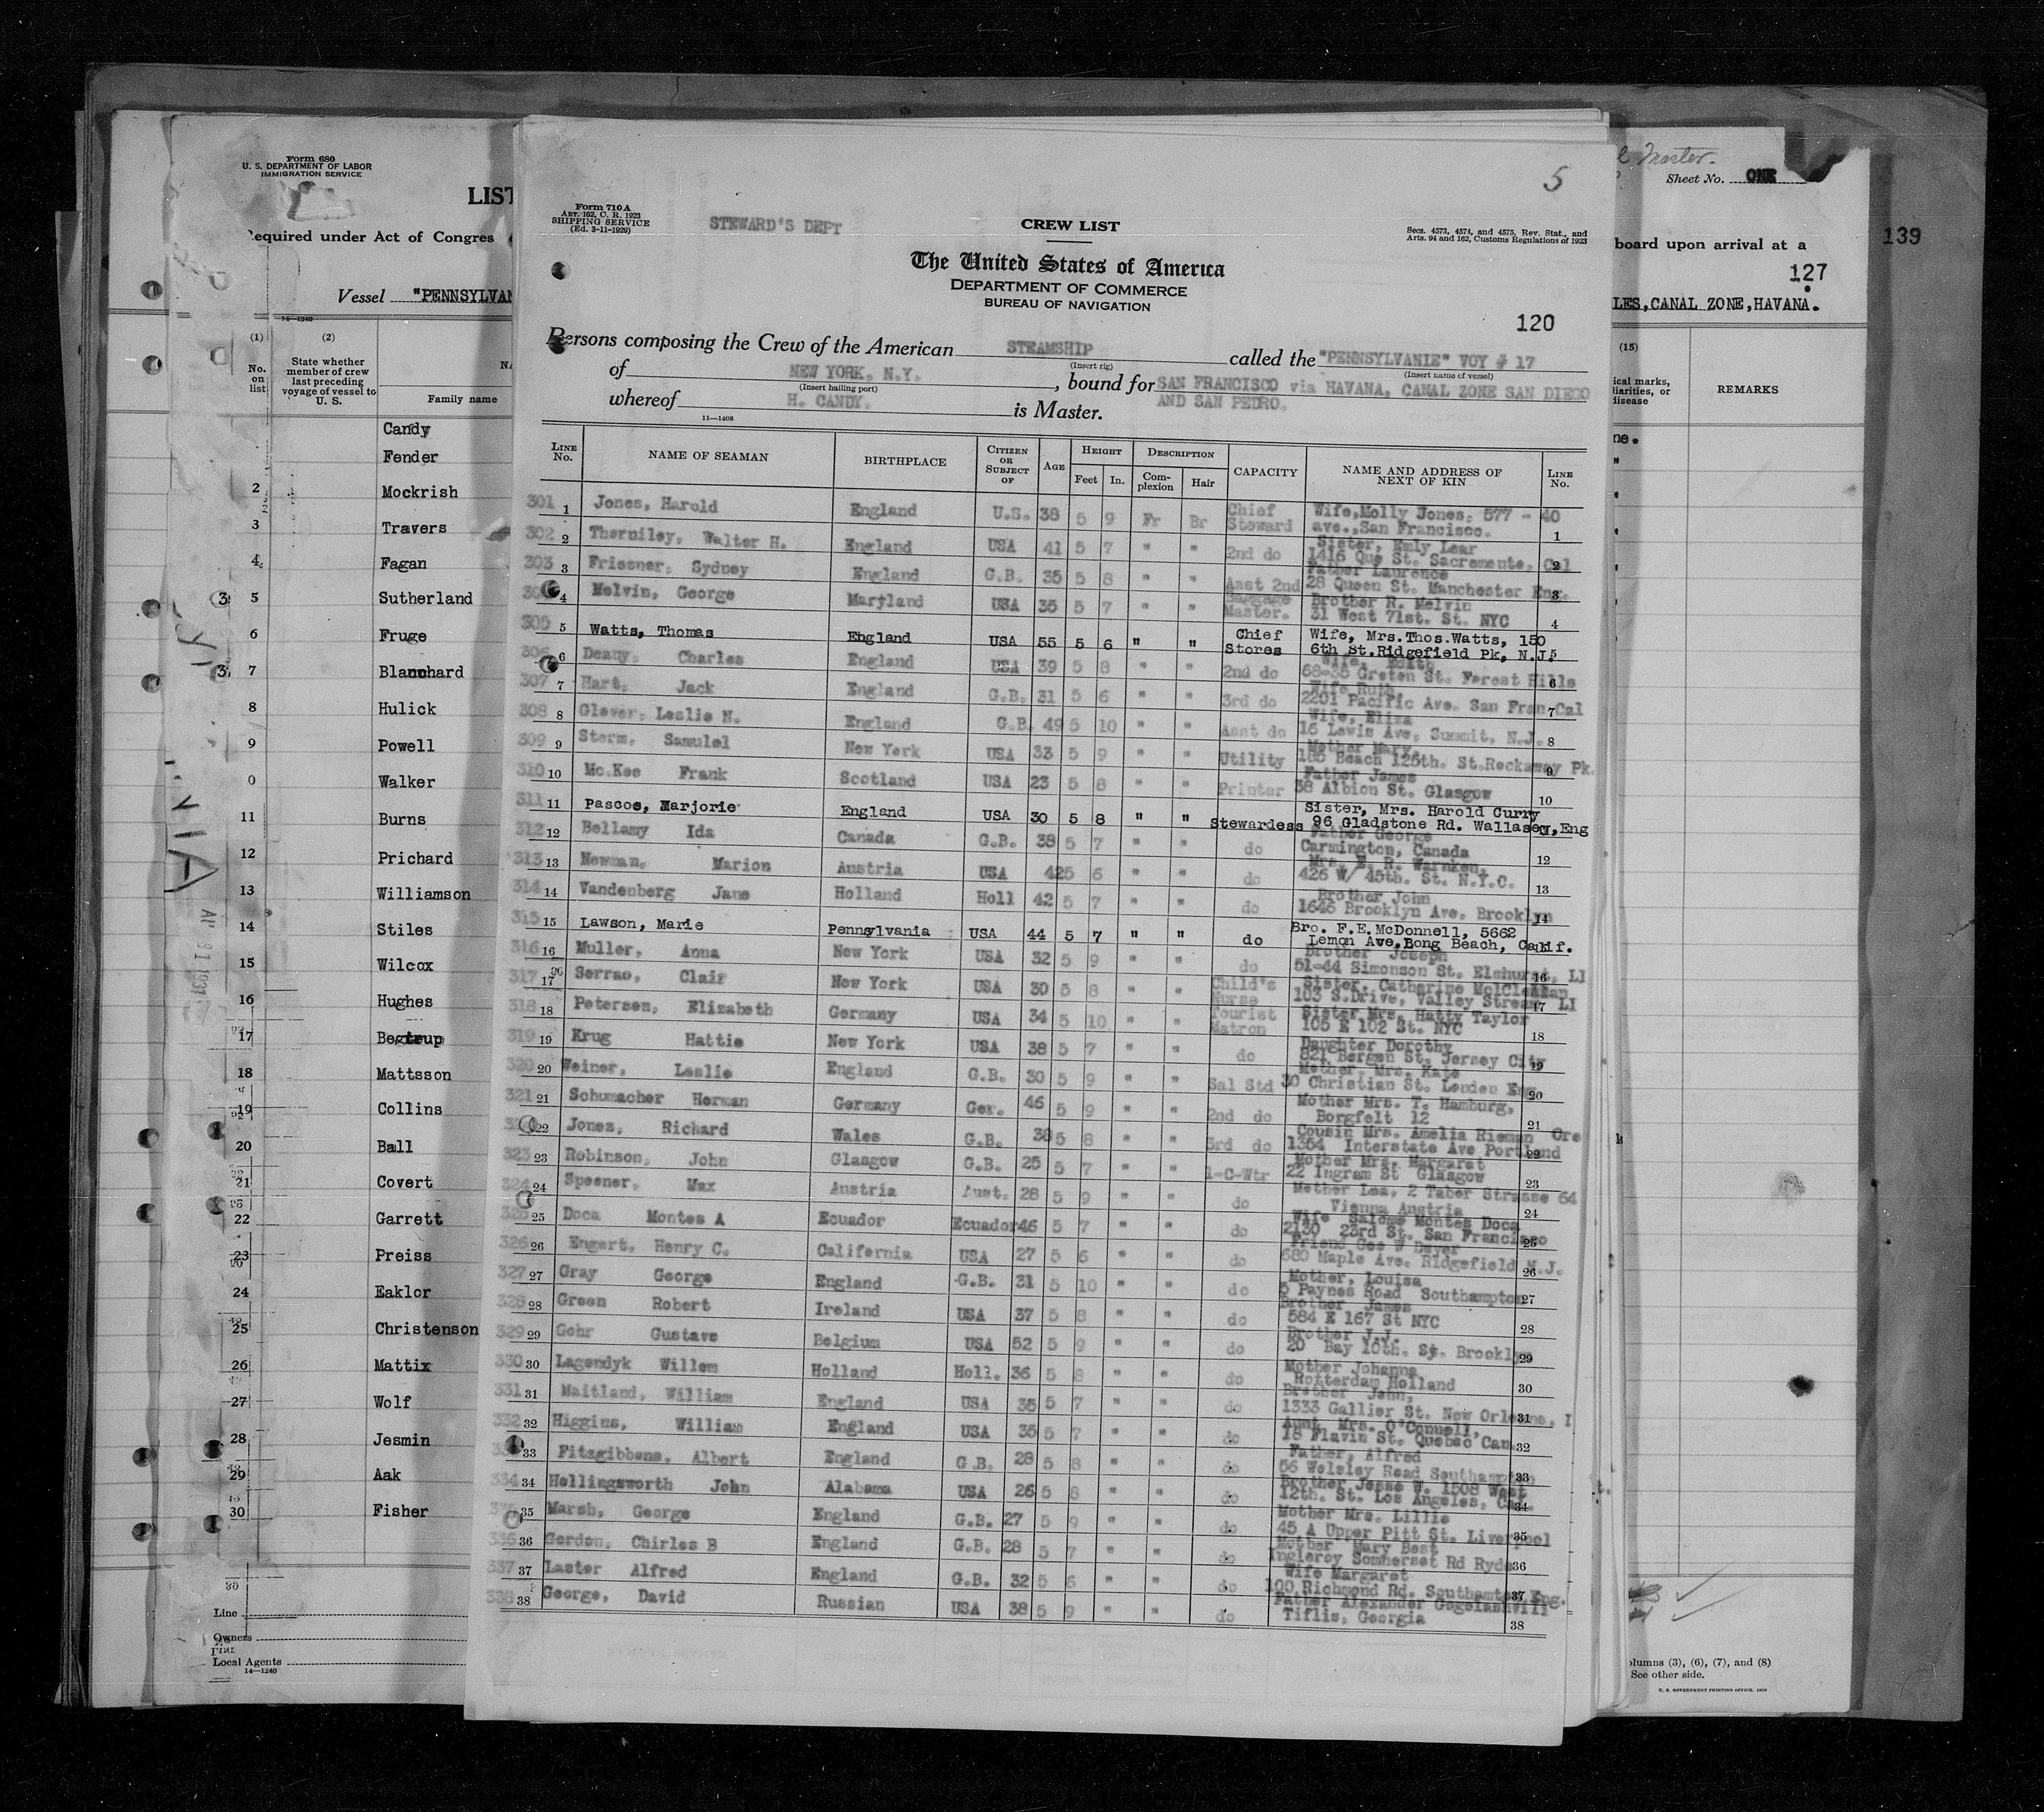 Form 680
U. S. DEPARTMENT OF LABOR
IMMIGRATION SERVICE
LIST
Required under Act of Congres
Vessel "PENNSYLVAN
14—1240
(1) (2)
No. on list
State whether member of crew last preceding voyage of vessel to U. S.
Family name
Candy
Fender
2 Mockrish
3 Travers
4 Fagan
5 Sutherland
6 Fruge
7 Blanchard
8 Hulick
9 Powell
0 Walker
11 Burns
12 Prichard
13 Williamson
14 Stiles
15 Wilcox
16 Hughes
17 Begtrup
18 Mattsson
19 Collins
20 Ball
21 Covert
22 Garrett
23 Preiss
24 Eaklor
25 Christenson
26 Mattix
27 Wolf
28 Jesmin
29 Aak
30 Fisher
Line
Owners
Local Agents
14—1240
5
Form 710A
ART. 162, C. R. 1923
SHIPPING SERVICE
(Ed. 3-11-1929)
STEWARD'S DEPT
CREW LIST
Secs. 4573, 4574, and 4575, Rev. Stat., and
Arts. 94 and 162, Customs Regulations of 1923
The United States of America
DEPARTMENT OF COMMERCE
BUREAU OF NAVIGATION
120
Persons composing the Crew of the American STEAMSHIP called the "PENNSYLVANIE" VOY # 17
(Insert rig) (Insert name of vessel)
of NEW YORK. N.Y. , bound for SAN FRANCISCO via HAVANA, CANAL ZONE SAN DIEGO
(Insert hailing port)
whereof H. CANDY. is Master. AND SAN PEDRO.
11—1408
LINE No. NAME OF SEAMAN BIRTHPLACE CITIZEN OR SUBJECT OF AGE HEIGHT Feet In. DESCRIPTION Complexion Hair CAPACITY NAME AND ADDRESS OF NEXT OF KIN LINE No.
301 1 Jones, Harold England U.S. 38 5 9 Fr Br Chief Steward Wife,Molly Jones, 577 - 40 ave.,San Francisco. 1
302 2 Thorniley, Walter H. England USA 41 5 7 " " 2nd do Sister, Emly Lear 1416 Que St. Sacremento, Cal 2
303 3 Friesner, Sydney England G.B. 35 5 8 " " Asst 2nd Father Laurence 28 Queen St. Manchester Eng. 3
4 Melvin, George Maryland USA 35 5 7 " " Baggage Master. Brother R. Melvin 31 West 71st. St. NYC 4
305 5 Watts, Thomas England USA 55 5 6 " " Chief Stores Wife, Mrs.Thos.Watts, 150 6th St.Ridgefield Pk, N.J. 5
306 6 Deany, Charles England USA 39 5 8 " " 2nd do Wife, Edith 68-35 Groton St. Forest Hills 6
307 7 Hart, Jack England G.B. 31 5 6 " " 3rd do Wife Ruth 2201 Pacific Ave. San Fran Cal 7
308 8 Glover, Leslie N. England G.B. 49 5 10 " " Asst do Wife, Eliza 16 Lewis Ave, Summit, N.J. 8
309 9 Storm, Samulel New York USA 33 5 9 " " Utility Mother Mary, 185 Beach 125th. St.Rockaway Pk. 9
310 10 Mc.Kee Frank Scotland USA 23 5 8 " " Printer Father James 38 Albion St. Glasgow 10
311 11 Pascoe, Marjorie England USA 30 5 8 " " Stewardess Sister, Mrs. Harold Curry 96 Gladstone Rd. Wallasey,Eng
312 12 Bellamy Ida Canada G.B. 38 5 7 " " do Father George Carmington, Canada 12
313 13 Newman, Marion Austria USA 42 5 6 " " do Mrs. E. R. Warnken, 426 W/ 45th. St. N.Y.C. 13
314 14 Vandenberg Jane Holland Holl 42 5 7 " " do Brother John 1646 Brooklyn Ave. Brooklyn 14
315 15 Lawson, Marie Pennsylvania USA 44 5 7 " " do Bro. F.E.McDonnell, 5662 Lemon Ave,Bong Beach, Calif.
316 16 Muller, Anna New York USA 32 5 9 " " do Brother Joseph 51-44 Simonson St. Elmhurst, LI 16
317 17 Serrao, Clair New York USA 30 5 8 " " Child's Nurse Sister, Catharine McClennan 103 S.Drive, Valley Stream LI 17
318 18 Petersen, Elizabeth Germany USA 34 5 10 " " Tourist Matron Sister Mrs. Hatty Taylor 105 E 102 St. NYC 18
319 19 Krug Hattie New York USA 38 5 7 " " do Daughter Dorothy 821 Bergen St. Jersey City 19
320 20 Weiner, Leslie England G.B. 30 5 9 " " Sal Std Mother, Mrs. Kate 30 Christian St. London Eng 20
321 21 Schumacher Herman Germany Ger. 46 5 9 " " 2nd do Mother Mrs. T. Hamburg, Borgfelt 12 21
22 Jones, Richard Wales G.B. 38 5 8 " " 3rd do Cousin Mrs. Amelia Rieman Ore 1354 Interstate Ave Portland 22
323 23 Robinson, John Glasgow G.B. 25 5 7 " " 1-C-Wtr Mother Mrs. Margaret 22 Ingram St Glasgow 23
324 24 Spesner, Max Austria Aust. 28 5 9 " " do Mother Lea, 2 Taber Strasse 64 Vienna Austria 24
325 25 Doca Montes A Ecuador Ecuador 46 5 7 " " do Wife Salome Montes Doca 2130 23rd St. San Francisco 25
326 26 Engert, Henry C. California USA 27 5 6 " " do Friend Geo W Dwyer 680 Maple Ave. Ridgefield N.J. 26
327 27 Gray George England G.B. 31 5 10 " " do Mother, Louisa 5 Paynes Road Southampton 27
328 28 Green Robert Ireland USA 37 5 8 " " do Brother James 584 E 167 St NYC 28
329 29 Gohr Gustave Belgium USA 52 5 9 " " do Brother J.J. 20 Bay 10th. St. Brooklyn 29
330 30 Lagendyk Willem Holland Holl. 36 5 8 " " do Mother Johanna Rotterdam Holland 30
331 31 Maitland, William England USA 35 5 7 " " do Brother John, 1333 Gallier St. New Orleans, 31
332 32 Higgins, William England USA 35 5 7 " " do Aunt Mrs. O'Connell, 18 Flavin St. Quebec Can 32
33 Fitzgibbons, Albert England G.B. 28 5 8 " " do Father, Alfred 56 Welsley Road Southampton 33
334 34 Hollingsworth John Alabama USA 26 5 8 " " do Brother Jesse W. 1508 West 12th. St. Los Angeles, Ca. 34
35 Marsh, George England G.B. 27 5 9 " " do Mother Mrs. Lillie 45 A Upper Pitt St. Liverpool 35
336 36 Gordon, Chirles B England G.B. 28 5 7 " " do Mother Mary Best Ingleroy Somherset Rd Ryde 36
337 37 Laster Alfred England G.B. 32 5 6 " " do Wife Margaret 100 Richmond Rd. Southamton Eng. 37
338 38 George, David Russian USA 38 5 9 " " do Father Alexander Gogelashvili Tiflis, Georgia 38
Master.
Sheet No. ONE
board upon arrival at a
139
127
LES,CANAL ZONE,HAVANA.
(15)
ical marks,
liarities, or
disease
REMARKS
ne.
olumns (3), (6), (7), and (8)
See other side.
U. S. GOVERNMENT PRINTING OFFICE